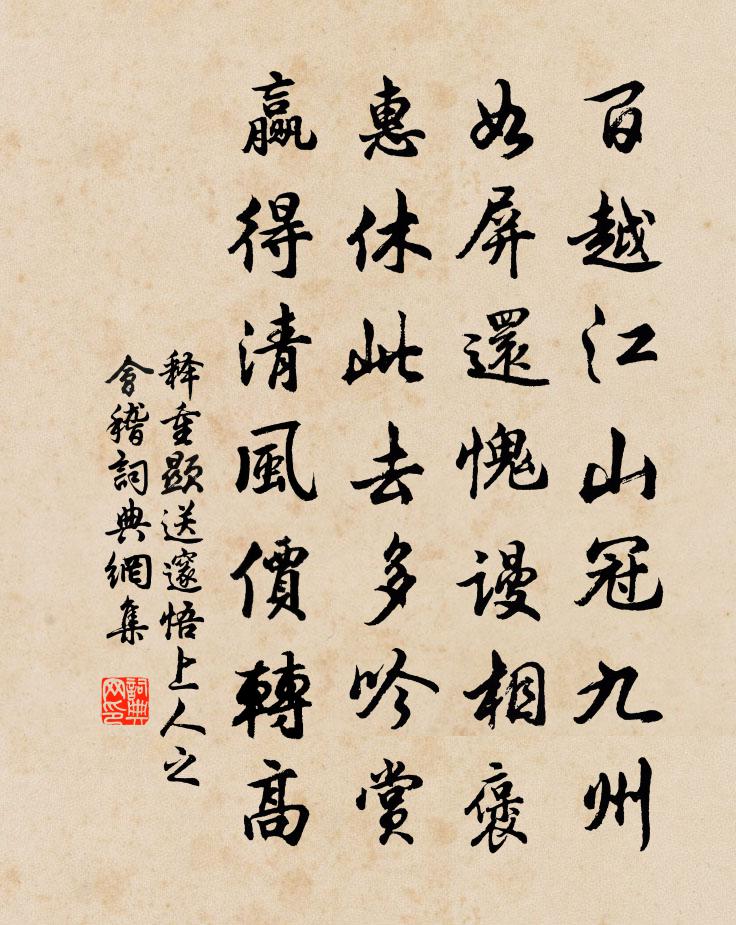 百越江山冠九州
如屏還愧謾相褒
惠休此去多吟賞
贏得清風價轉高
释重顯送邃悟上人之
會稽詞典網集
詞典网印